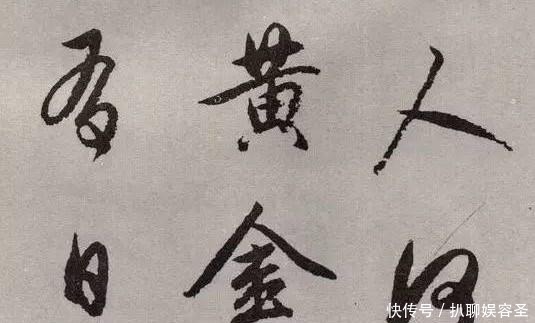 人
黄金
有日
快传号/扒聊娱容圣